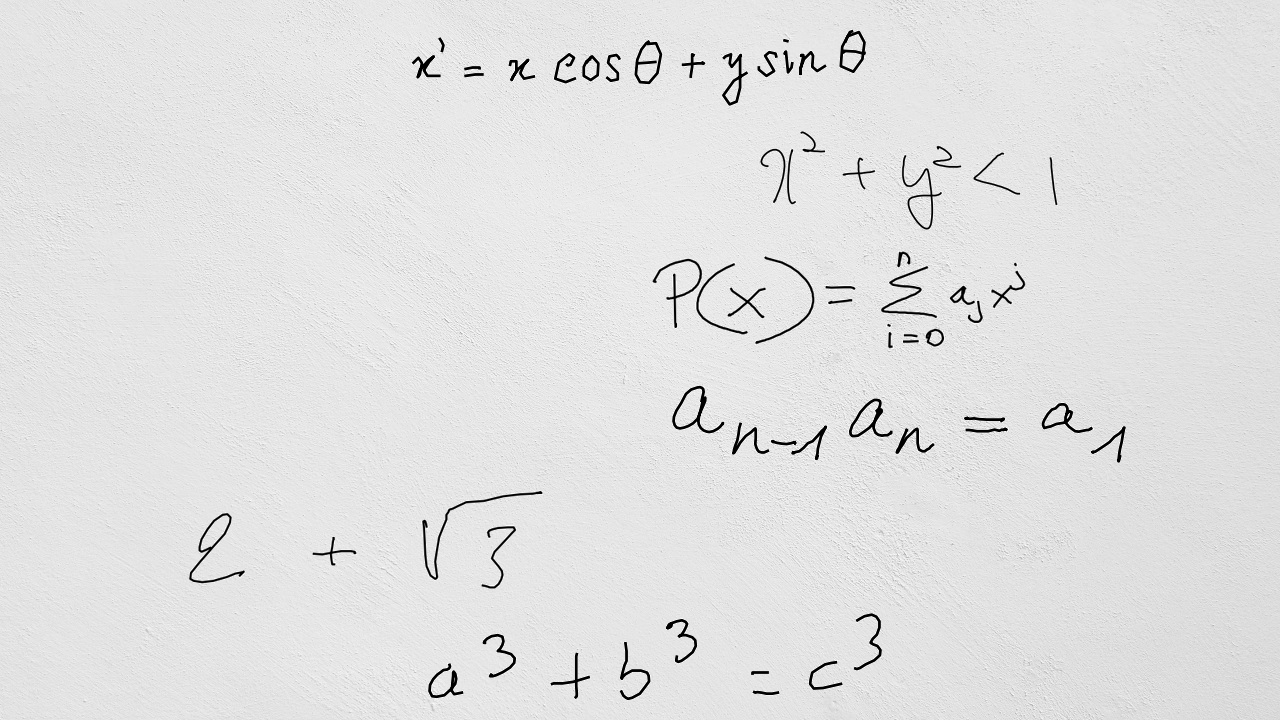 x' = x cos θ + y sin θ
x² + y² < 1
P(x) = ∑_{i=0}^{n} a_j x^j
a_{n-1} a_n = a_1
2 + √3
a³ + b³ = c³